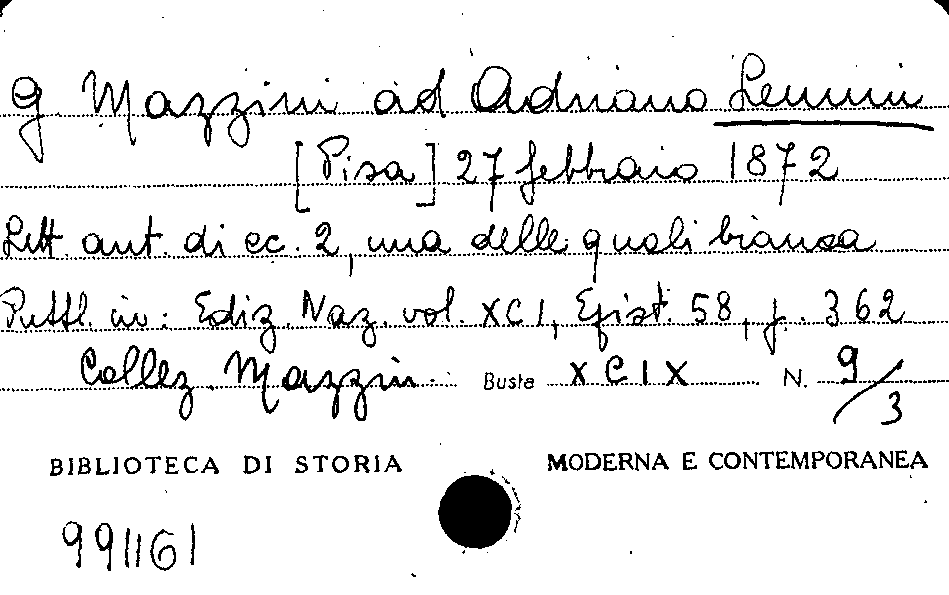 G. Mazzini ad Adriano Lemmi
[Pisa] 27 febbraio 1872
Lett. aut. di cc. 2, una delle quali bianca
Pubbl. in: Ediz. Naz. vol. XCI, Epist. 58, p. 362
Collez. Mazzini Busta XCIX N. 9/3
BIBLIOTECA DI STORIA MODERNA E CONTEMPORANEA
991161